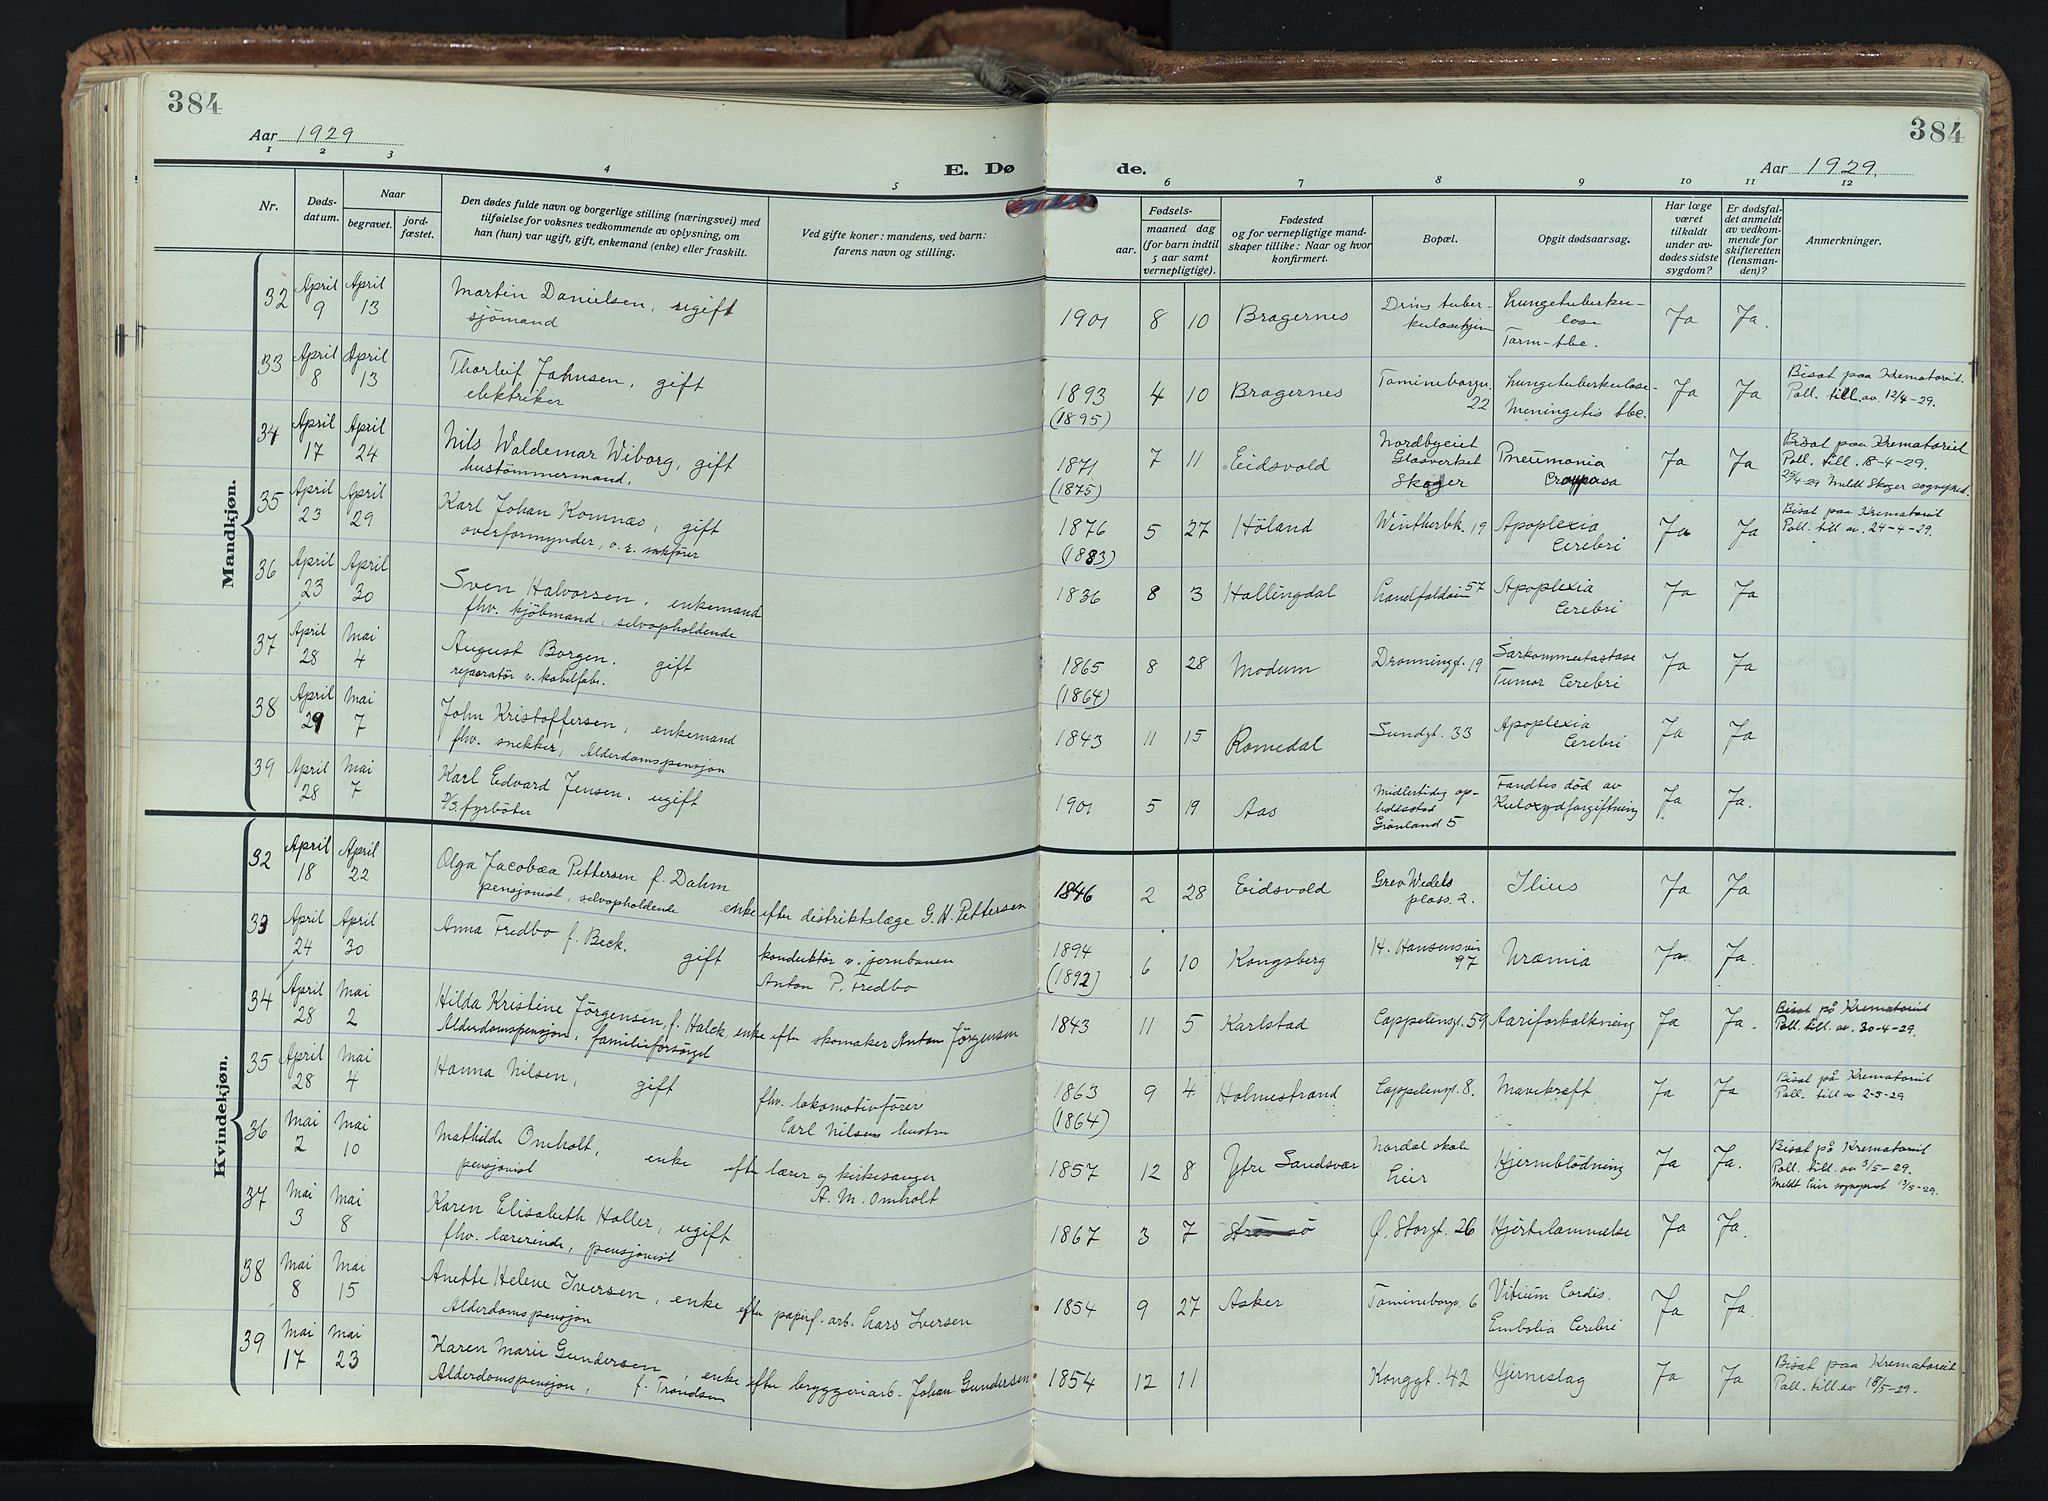 384
384
Aar 1929
Aar 1929.
E. Dø
de.
1 2 3 4 5 6 7 8 9 10 11 12
Nr.
Døds-
datum.
Naar
begravet.
jord-
fæstet.
Den dødes fulde navn og borgerlige stilling (næringsvei) med
tilføielse for voksnes vedkommende av oplysning, om
han (hun) var ugift, gift, enkemand (enke) eller fraskilt.
Ved gifte koner: mandens, ved barn:
farens navn og stilling.
Fødsels-
aar. maaned dag
(for barn indtil
5 aar samt
vernepligtige).
Fødested
og for vernepligtige mand-
skaper tillike: Naar og hvor
konfirmert.
Bopæl.
Opgit dødsaarsag.
Har læge
været
tilkaldt
under av-
dødes sidste
sygdom?
Er dødsfal-
det anmeldt
av vedkom-
mende for
skifteretten
(lensman-
den)?
Anmerkninger.
Mandkjøn.
32 April 9 April 13 Martin Danielsen, ugift
sjömand
1901 8 10 Bragernes
Drms tuber-
kulosehjem
Lungetuberku-
lose
Tarm-tbc.
Ja Ja.
33 April 8 April 13 Thorleif Johnsen, gift
elektriker
1893 4 10 Bragernes
(1895)
Tomineborgv.
22
Lungetuberkulose-
Meningitis tbc.
Ja Ja
Bisat paa Krematoriet.
Poll. till. av. 12/4-29.
34 April 17 April 24 Nils Waldemar Wiborg, gift
hustömmermand.
1871 7 11 Eidsvold
(1875)
Nordbyeiet
Glasverket
Skoger
Pneumonia
Crouposa
Ja Ja
Bisat paa Krematoriet
Poll. till. 18-4-29.
25/4-29 Meldt Skoger sognepr.
35 April 23 April 29 Karl Johan Komnæs, gift
overformynder, o.r. sakfører
1876 5 27 Höland
(1883)
Wintherbk. 19
Apoplexia
Cerebri
Ja Ja
Bisat paa Krematoriet
Poll. till av. 24-4-29.
36 April 23 April 30 Sven Halvorsen, enkemand
fhv. kjöbmand, selvopholdende
1836 8 3 Hallingdal
Landfaldöien 57
Apoplexia
Cerebri
Ja Ja
37 April 28 Mai 4 August Borgen. gift
reparatör v. kabelfabr.
1865 8 28 Modum
(1864)
Dronninggt. 19
Tumor Cerebri
Ja Ja
38 April 29 Mai 7 John Kristoffersen, enkemand
fhv. snekker, Alderdomspensjon
1843 11 15 Romedal
Sundgt. 33
Apoplexia
Cerebri
Ja Ja
39 April 28 Mai 7 Karl Edvard Jensen. ugift
D/S. fyrböter
1901 5 19 Aas
Midlertidig op-
holdssted
Grönland 5
Fandtes död av
Kuloxydforgiftning
Ja Ja.
Kvindekjøn.
32 April 18 April 22 Olga Jacobæa Pettersen f. Dahm
pensjonist, selvopholdende enke efter distriktslæge G. H. Pettersen
1846 2 28 Eidsvold
Grev Wedels
plass 2.
Ilius
Ja Ja
33 April 24 April 30 Anna Fredbo f. Beck. gift
konduktör v. jernbanen
Anton P. Fredbo
1894 6 10 Kongsberg
(1892)
H. Hansensvei
97
Uræmia
Ja Ja.
34 April 28 Mai 2 Hilda Kristine Jörgensen, f. Halck enke efter skomaker Anton Jörgensen
Alderdomspensjon, familieforsörget
1843 11 5 Karlstad
Cappelensgt. 59
Aariforkalkning
Ja Ja.
Bisat på Krematoriet
Poll. till. av. 30-4-29.
35 April 28 Mai 4 Hanna Nilsen, gift
fhv. lokomotivförer
Carl Nilsens hustru
1863 9 4 Holmestrand
(1864)
Cappelensgt. 8.
Mavekræft
Ja Ja
Bisat på Krematoriet
Poll. till av 2-5-29
36 Mai 2 Mai 10 Mathilde Omholt, enke efter lærer og kirkesanger
pensjonist
A. M. Omholt
1857 12 8 Ytre Sandsvær
Nordal skole
Lier
Hjerneblödning
Ja Ja.
Bisat på Krematoriet
Poll. till. av 3/5-29.
Meldt Lier sogneprest 13/5-29.
37 Mai 3 Mai 8 Karen Elisabeth Holler, ugift
fhv. lærerinde, pensjonist
1867 3 7 Strömsö
Ø. Storgt. 26
Hjertelammelse
Ja Ja.
38 Mai 8 Mai 15 Anette Helene Iversen, enke efter papirf. arb. Lars Iversen
Alderdomspensjon
1854 9 27 Asker
Tomineborgv. 6
Vitium Cordis.
Embolia Cerebri
Ja Ja.
39 Mai 17 Mai 23 Karen Marie Gundersen, enke efter bryggeriarb. Johan Gundersen
Alderdomspensjon, f. Trondsen
1854 12 11
Konggt. 42
Hjerneslag
Ja Ja
Bisat paa Krematoriet
Poll. till. av 18/5-29.